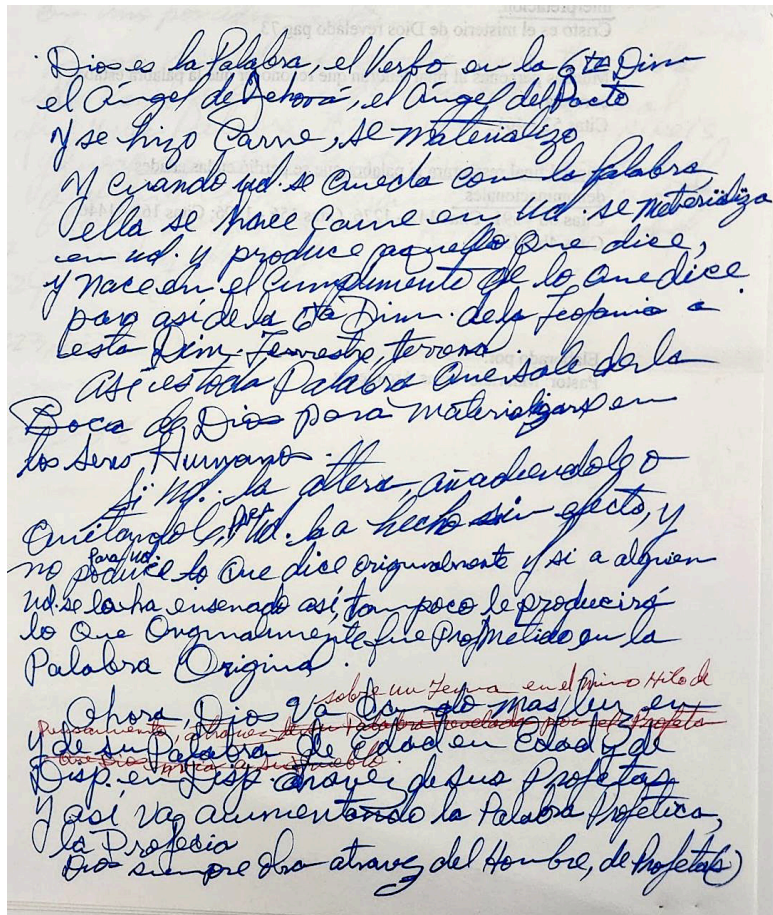 Cristo es el misterio de Dios revelado pag 73
Dios es la Palabra, el Verbo en la 6ta Dim
el Ángel de Jehová, el Ángel del Pacto
Y se hizo Carne, se materializo
Y cuando ud. se queda con la Palabra,
ella se hace Carne en Ud. se materializa
en ud. y produce aquello que dice,
y nace en el Cumplimento de lo que dice
para así de la 6ta Dim. de la Teofania a
esta Dim. Terrestre, terrena.
Así es toda Palabra que sale de la
Boca de Dios para materializarse en
los Seres Humanos.
Si Ud. la altera, añadiendole o
quitandole, Ud. la ha hecho sin efecto, y
no produce para ud. lo que dice originalmente y si a alguien
ud. se la ha ensenado así, tampoco le producirá
lo que Originalmente fue Prometido en la
Palabra Original.
sobre un Tema en el mismo Hilo de
Ahora, Dios va dando mas luz en
Pensamiento, a traves de su Palabra Revelada por el Profeta
y de su Palabra de Edad en Edad y de
que Dios envia a su Pueblo.
Disp. en Disp. atravez de sus Profetas
Y así va aumentando la Palabra Profetica,
la Profecia
Dios siempre Obra atravez del Hombre, de Profeta(s)